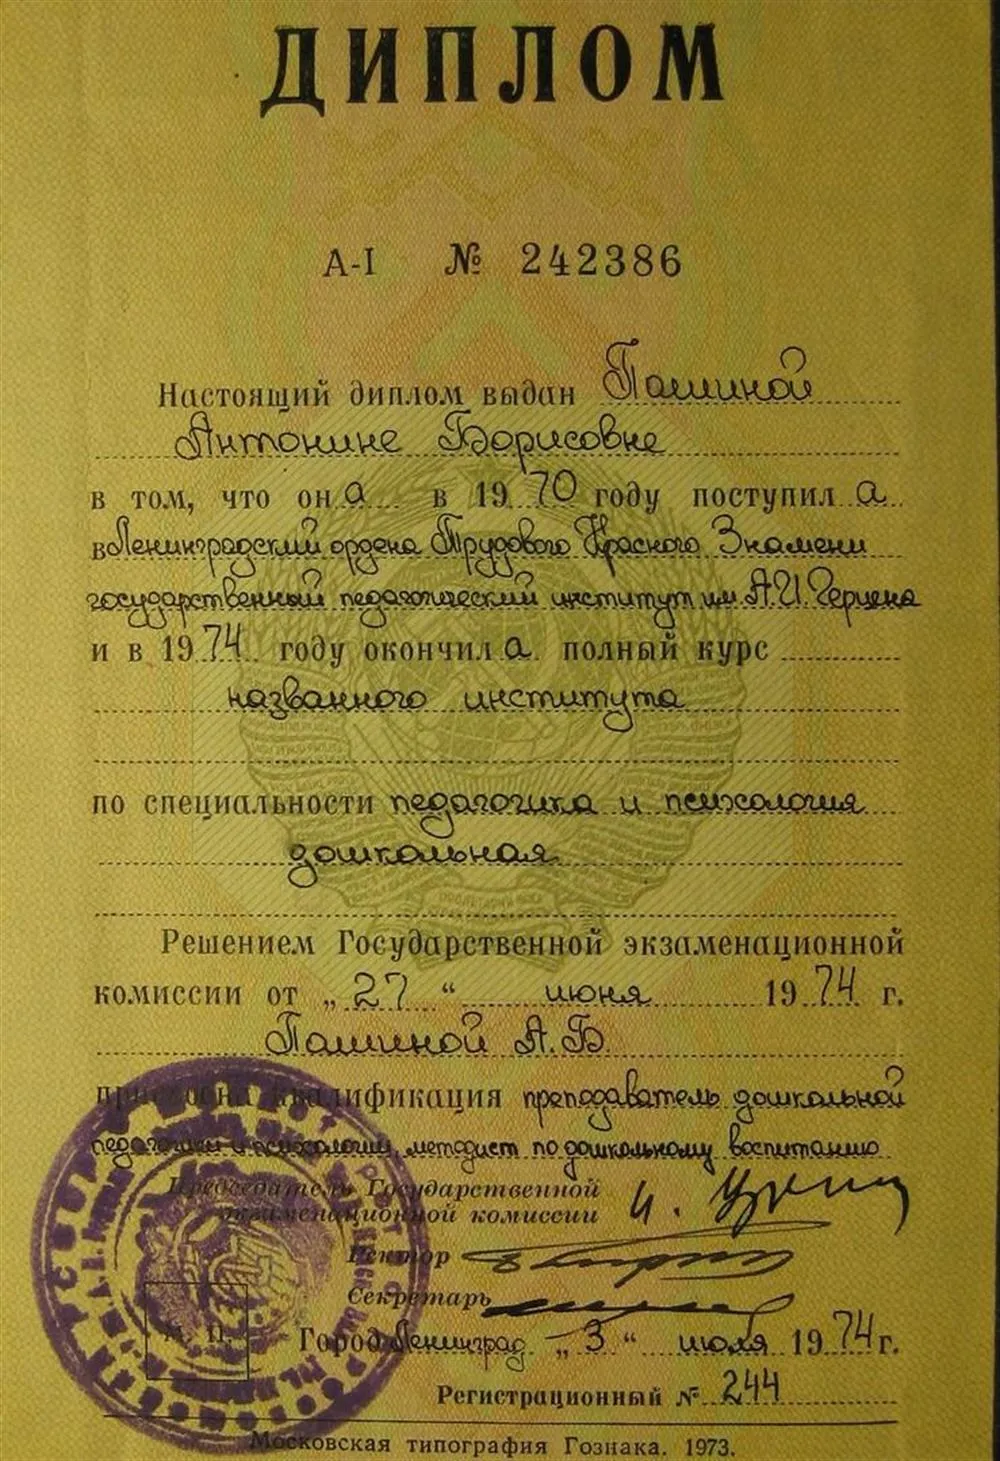 ДИПЛОМ
А-I № 242386
Настоящий диплом выдан Пашиной
Антонине Борисовне
в том, что она в 1970 году поступила
в Ленинградский ордена Трудового Красного Знамени
государственный педагогический институт им. А.И. Герцена
и в 1974 году окончила полный курс
названного института
по специальности педагогика и психология
дошкольная
Решением Государственной экзаменационной
комиссии от „27“ июня 1974 г.
Пашиной А.Б.
присвоена квалификация преподаватель дошкольной
педагогики и психологии, методист по дошкольному воспитанию
Председатель Государственной
экзаменационной комиссии
Ректор
Секретарь
М. П.
Город Ленинград „3“ июля 1974г.
Регистрационный № 244
Московская типография Гознака. 1973.